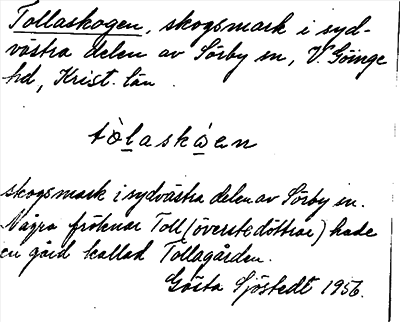 Tollaskogen, skogsmark i syd-
västra delen av Sörby sn, V. Göinge
hd, Krist. län.
tòlaskåen
skogsmark i sydvästra delen av Sörby sn.
Några fröknar Toll (överstedöttrar) hade
en gård kallad Tollagården.
Gösta Sjöstedt 1956.